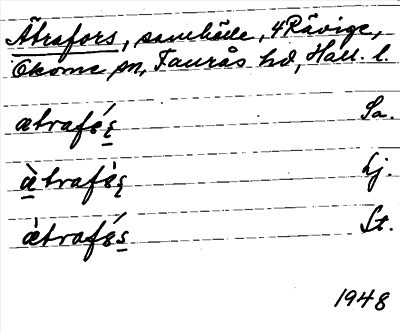 Ätrafors, samhälle, 4 Rävige,
Okome sn, Faurås hd, Hall. l.
ætrafɛ́ş Sa.
æ̀trafɛ̀ş Lj.
æ̀trafɛ́s St.
1948